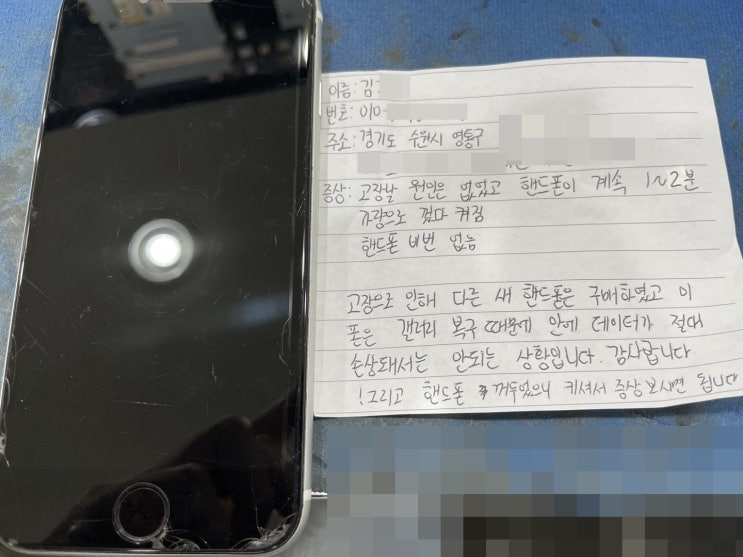 이름: 김
번호: 010-
주소: 경기도 수원시 영통구
증상: 고장날 원인은 없었고 핸드폰이 계속 1~2분
가량으로 껐다 켜짐
핸드폰 비번 없음
고장으로 인해 다른 새 핸드폰은 구매하였고 이
폰은 갤러리 복구 때문에 안에 데이터가 절대
손상돼서는 안되는 상황입니다. 감사합니다
!그리고 핸드폰 꺼두었으니 키셔서 증상보시면 됩니다